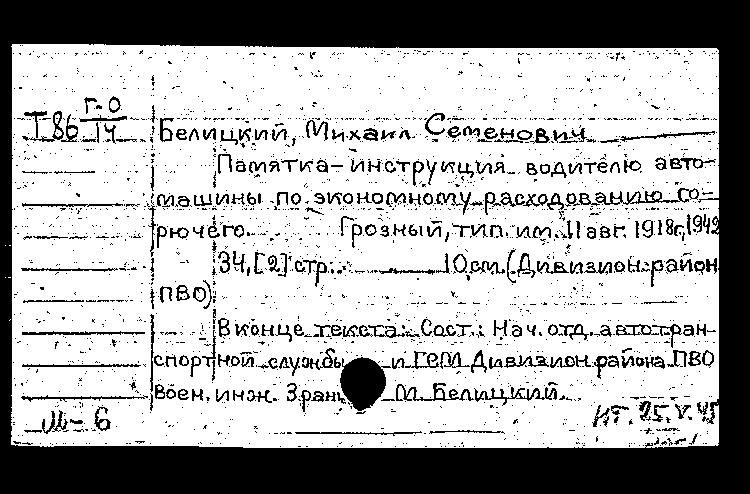 Г-0
Т86 14 Белицкий, Михаил Семенович
Памятка-инструкция водителю авто-
машины по экономному расходованию го-
рючего. Грозный, тип. им. 11 авг. 1918г, 1942
34, [2] стр. 10см. (Дивизион. район
ПВО)
В конце текста: Сост.: Нач. отд. автотран-
спортной службы и ГСМ Дивизион. района ПВО
воен. инж. 3 ран. М. Белицкий.
М-6
25.V.45